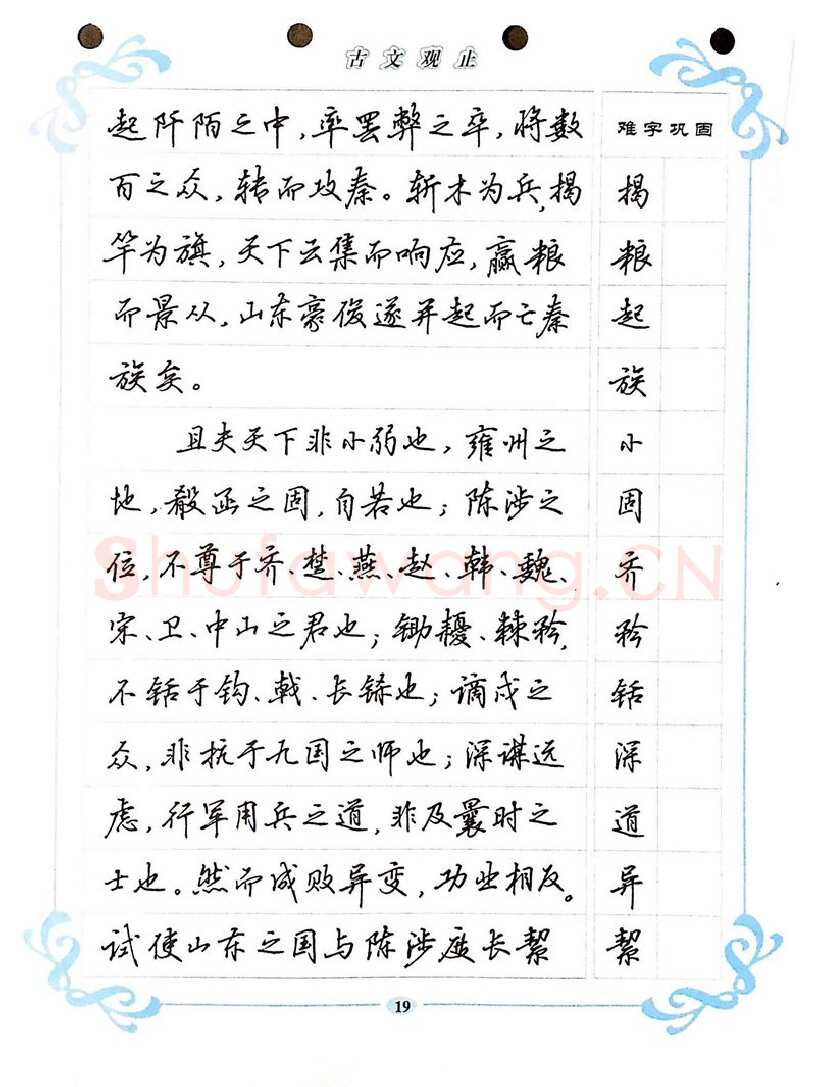 古文观止
起阡陌之中，率罢弊之卒，将数
百之众，转而攻秦。斩木为兵，揭
竿为旗，天下云集而响应，赢粮
而景从，山东豪俊遂并起而亡秦
族矣。
且夫天下非小弱也，雍州之
地，殽函之固，自若也；陈涉之
位，不尊于齐、楚、燕、赵、韩、魏、
宋、卫、中山之君也；锄耰、棘矜，
不铦于钩、戟、长铩也；谪戍之
众，非抗于九国之师也；深谋远
虑，行军用兵之道，非及曩时之
士也。然而成败异变，功业相反。
试使山东之国与陈涉度长絜
难字巩固
揭
粮
起
族
小
固
齐
矜
铦
深
道
异
絜
Shufawang.CN
19